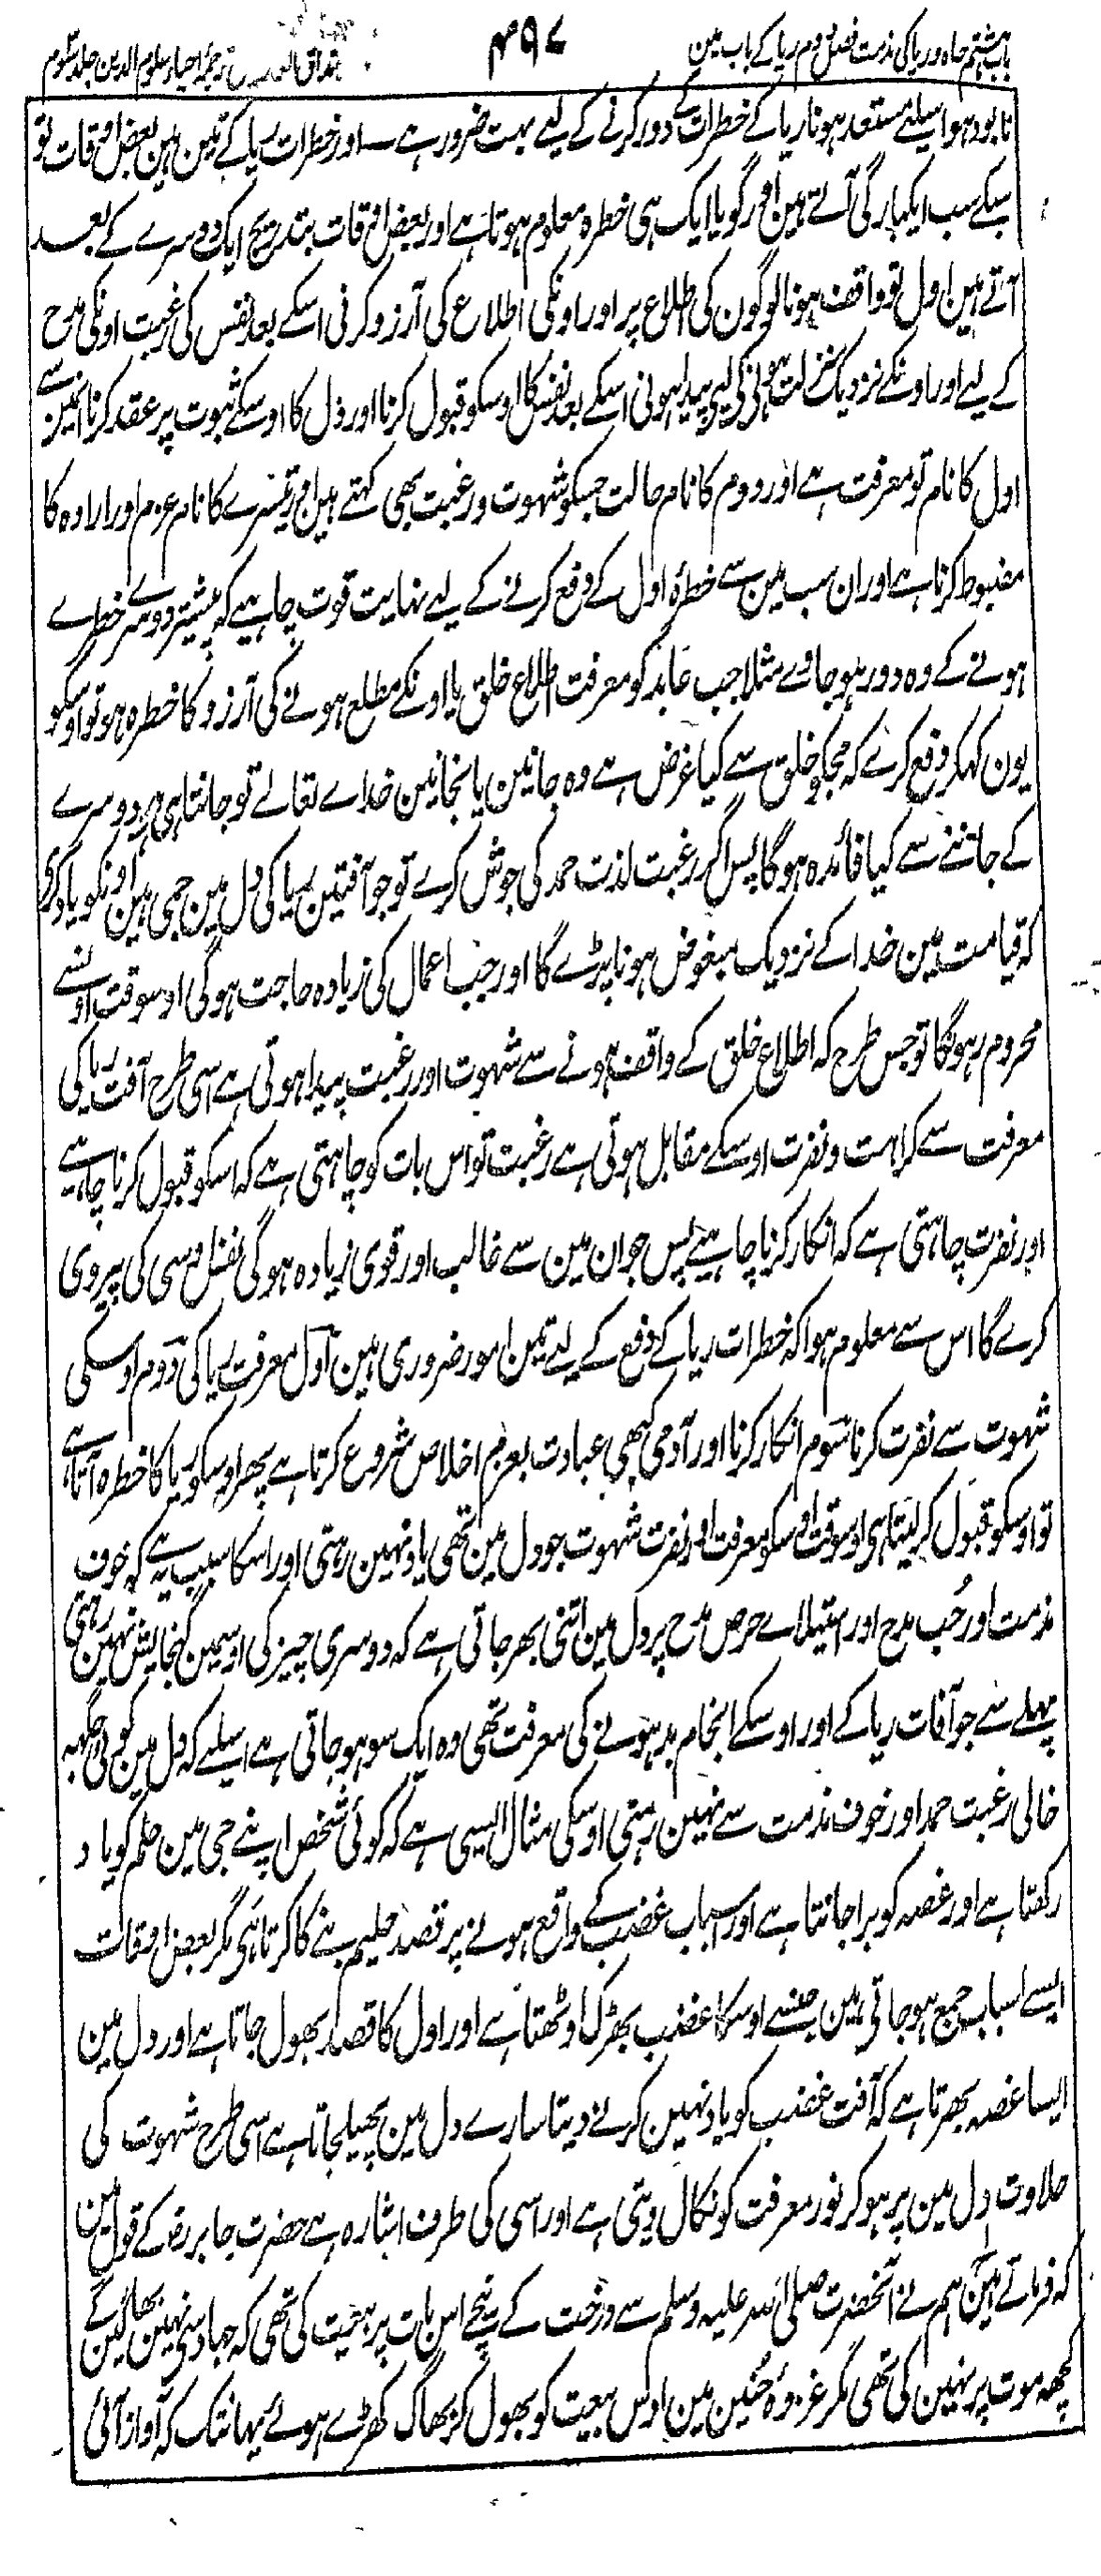 باب ہشتم جاہ و ریا کی مذمت فصل دوم ریا کے باب مین
۴۹۷
ترجمۂ احیاء علوم الدین جلد سوم
نابود ہو اسلیئے مستعد ہونا ریا کے خطرات کے دور کرنے کے لیے بہت ضرور ہے۔ اور خطرات ریا کے تین ہین بعض اوقات تو
سبکے سب ایکبارگی آتے ہین اور گویا ایک ہی خطرہ معلوم ہوتا ہے اور بعض اوقات بتدریج ایک دوسرے کے بعد
آتے ہین اول تو واقف ہونا لوگون کی اطلاع پر اور اونکی اطلاع کی آرزو کرنی اسکے بعد نفس کی رغبت اونکی مدح
کے لیے اور اونکے نزدیک منزلت ہونی کی لیے پیدا ہونی اسکے بعد نفس کا اوسکو قبول کرنا اور دل کا اوسکے ثبوت پر عقد کرنا انمین سے
اول کا نام تو معرفت ہے اور دوم کا نام حالت جسکو شہوت و رغبت بھی کہتے ہین اور تیسرے کا نام عزم اور ارادہ کا
مضبوط کرنا ہے اور ان سب مین سے خطرۂ اول کے دفع کرنے کے لیے نہایت قوت چاہیے کہ پیشتر دوسرے خطرے
ہونے کے وہ دور ہو جاوے مثلا جب عابد کو معرفت اطلاع خلق یا اونکے مطلع ہونے کی آرزو کا خطرہ ہو تو اوسکو
یون کہکر دفع کرے کہ مجکو خلق سے کیا غرض ہے وہ جانین یا نجانین خداے تعالے تو جانتا ہی ہی دوسرے
کے جاننے سے کیا فائدہ ہوگا پس اگر رغبت لذت حمد کی جوش کرے تو جو آفتین ریا کی دل مین جمی ہین اونکو یاد کری
کہ قیامت مین خدا کے نزدیک مبغوض ہونا پڑے گا اور جب اعمال کی زیادہ حاجت ہوگی اوسوقت اونسے
محروم رہونگا تو جس طرح کہ اطلاع خلق کے واقف ہونے سے شہوت اور رغبت پیدا ہوتی ہے اسی طرح آفت ریا کی
معرفت سے کراہت و نفرت اوسکے مقابل ہوتی ہے رغبت تو اس بات کو چاہتی ہے کہ اسکو قبول کرنا چاہیے
اور نفرت چاہتی ہے کہ انکار کرنا چاہیے پس جو ان مین سے غالب اور قوی زیادہ ہوگی نفس اوسی کی پیروی
کرے گا اس سے معلوم ہوا کہ خطرات ریا کے دفع کے لیے تین امور ضروری ہین اول معرفت ریا کی دوم اوسکی
شہوت سے نفرت کرنا سوم انکار کرنا اور آدمی کبھی عبادت بعزم اخلاص شروع کرتا ہے پھر اوسکو ریا کا خطرہ آتا ہے
تو اوسکو قبول کر لیتا ہی اوسوقت اوسکو معرفت اور نفرت شہوت جو دل مین تھی یاد نہین رہتی اور اسکا سبب یہ ہے کہ خوف
مذمت اور حُب مدح اور استیلاے حرص مدح پر دل مین اتنی بھر جاتی ہے کہ دوسری چیز کی اوسمین گنجایش نہین رہتی
پہلے سے جو آفات ریا کے اور اوسکے انجام بد ہونے کی معرفت تھی وہ ایک سو ہو جاتی ہے اسلیے کہ دل مین کوئی جگہہ
خالی رغبت حمد اور خوف مذمت سے نہین رہتی اوسکی مثال ایسی ہے کہ کوئی شخص اپنے جی مین حلم کو یاد
رکھتا ہے اور غصہ کو برا جانتا ہے اور اسباب غضب کے واقع ہونے پر قصد حلیم بننے کا کرتا ہی مگر بعض اوقات
ایسے اسباب جمع ہو جاتی ہین جنسے اوسکا غضب بھڑک اوٹھتا ہے اور اول کا قصد بھول جاتا ہے اور دل مین
ایسا غصہ بھرتا ہے کہ آفت غضب کو یاد نہین کرنے دیتا سارے دل مین پھیلجاتا ہے اسی طرح شہوت کی
حلاوت دل مین پر ہو کر نور معرفت کو نکال دیتی ہے اور اسی کی طرف اشارہ ہے حضرت جابر رضہ کے قول مین
کہ فرماتے ہین ہم نے آنحضرت صلی اللہ علیہ وسلم سے درخت کے نیچے اس بات پر بیعت کی تھی کہ جہاد سی نہین بھاگین گے
کچھہ موت پر نہین کی تھی مگر غزوۂ حُنین مین اوس بیعت کو بھول کر بھاگ کھڑے ہوئے یہانتک کہ آواز آئی